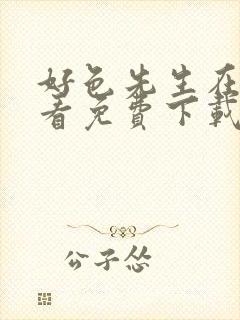 好色先生在
看免费下载
公子怂